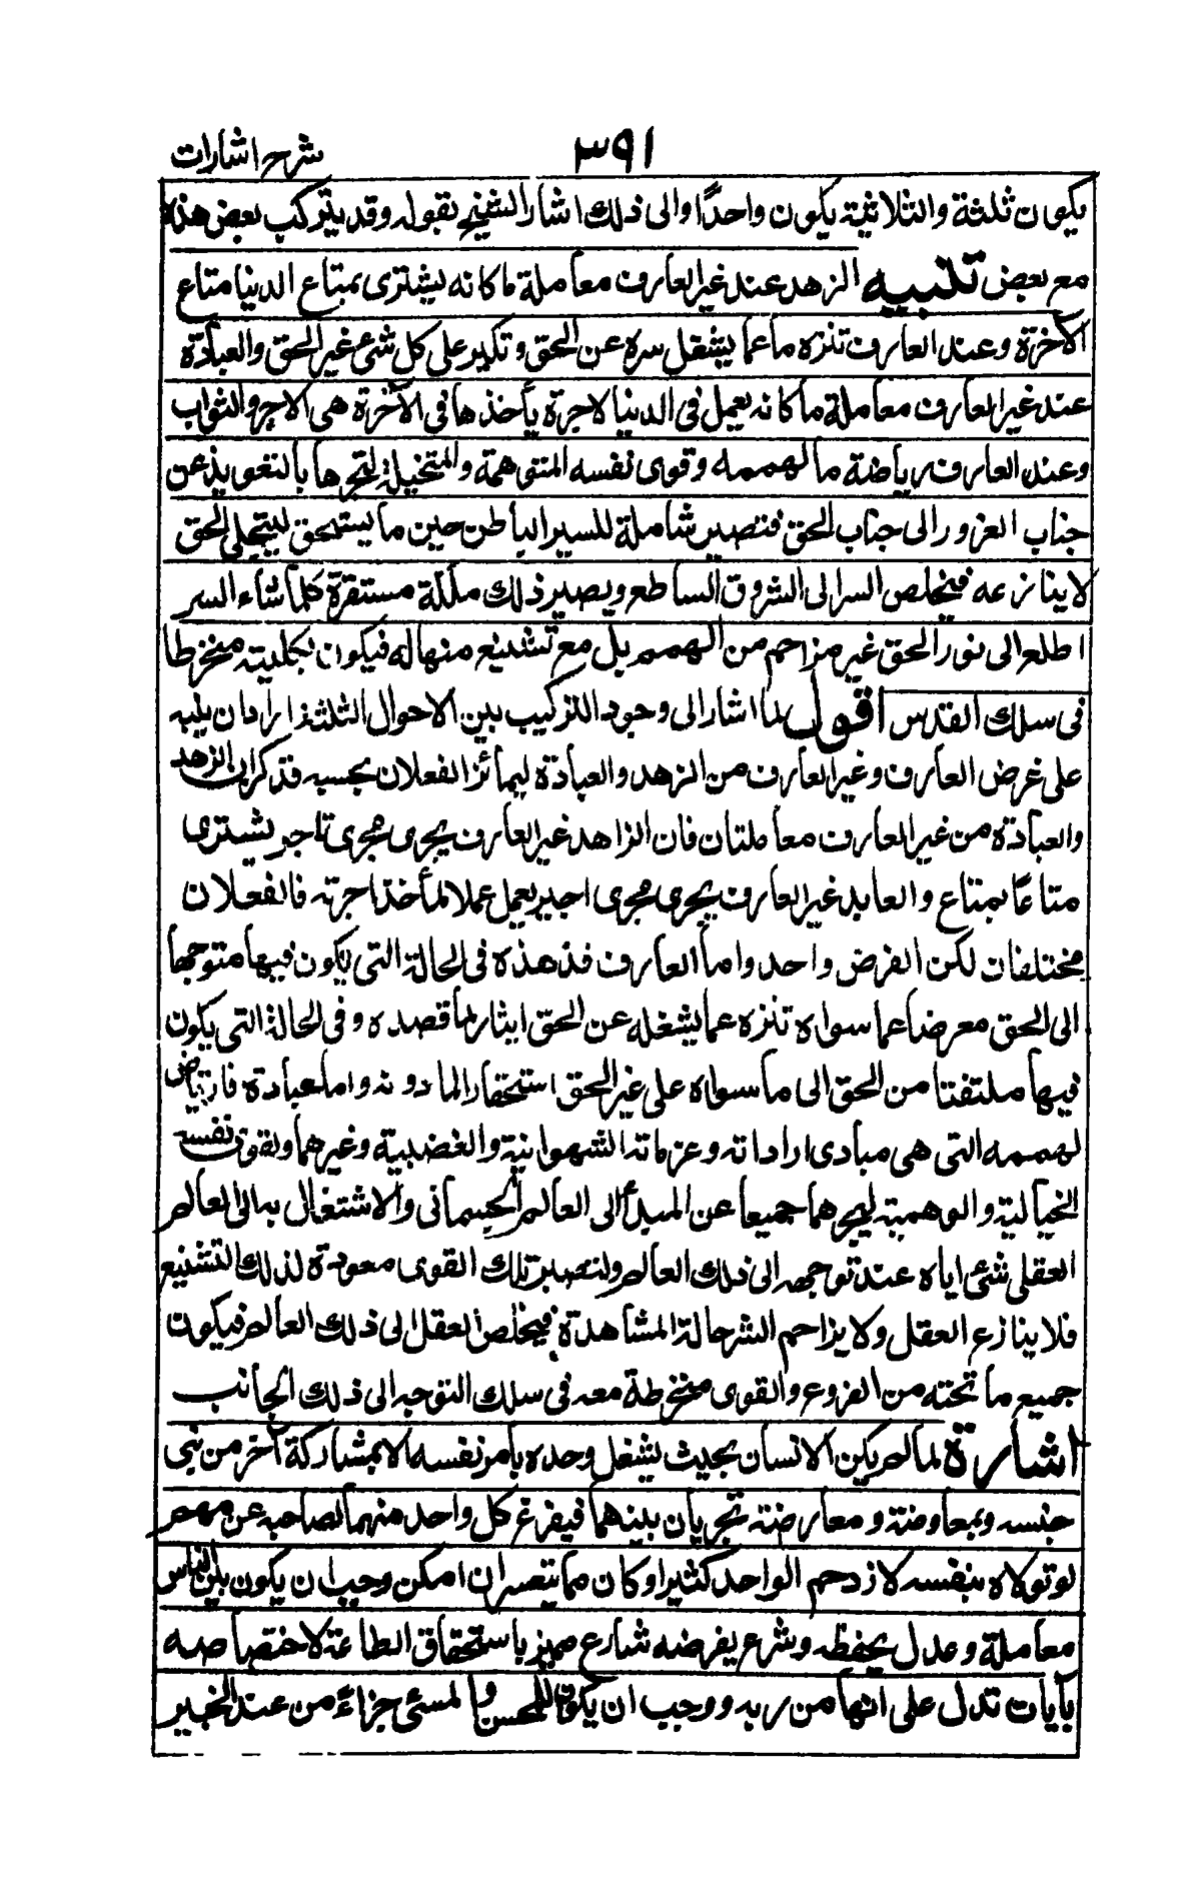 ٣٩١
شرح اشارات
يكون ثلثة والثلاثية يكون واحدًا والى ذلك اشار الشيخ بقوله وقد يتركب بعض هذه
مع بعض تنبيه الزهد عند غير العارف معاملة ما كانه يشترى بمتاع الدنيا متاع
الآخرة وعند العارف تنزه ما عما يشغل سره عن الحق وتكبر على كل شئ غير الحق والعبادة
عند غير العارف معاملة ما كانه يعمل فى الدنيا لاجرة يأخذها فى الآخرة هى الاجر والثواب
وعند العارف رياضة ما لهممه وقوى نفسه المتوهمة والمتخيلة ليجرها بالتعويذ عن
جناب الغرور الى جناب الحق فتصير شاملة للسير الباطن حين ما يستحق ليتجلى الحق
لا ينازعه فيخلص السر الى الشروق الساطع ويصير ذلك ملكة مستقرة كلما شاء السر
اطلع الى نور الحق غير مزاحم من الهمم بل مع تشنيع منها له فيكون بكليته منخرطا
فى سلك القدس اقول لما اشار الى وجود التركيب بين الاحوال الثلثة اراد ان ينبه
على غرض العارف وغير العارف من الزهد والعبادة ليمائز الفعلان بحسبه فذكر ان الزهد
والعبادة من غير العارف معاملتان فان الزاهد غير العارف يجرى مجرى تاجر يشترى
متاعًا بمتاع والعابد غير العارف يجرى مجرى اجير يعمل عملا لمأخذ اجرته فالفعلان
مختلفان لكن الغرض واحد واما العارف فزهده فى الحالة التى يكون فيها متوجها
الى الحق معرضا عما سواه تنزه عما يشغله عن الحق ايثار لما قصده وفى الحالة التى يكون
فيها ملتفتا من الحق الى ما سواه على غير الحق استحقار الما دونه واما عبادة فارتياض
لهممه التى هى مبادى اراداته وعزماته الشهوانية والغضبية وغيرهما ولقوى نفسه
الخيالية والوهمية ليجرهما جميعا عن الميل الى العالم الجسمانى والاشتغال به الى العالم
العقلى شئ اياه عند توجهه الى ذلك العالم ولتصير تلك القوى معودة لذلك التشنيع
فلا ينازع العقل ولا يزاحم السر حالة المشاهدة فيخلص العقل الى ذلك العالم فيكون
جميع ما تحته من الفروع والقوى منخرطة معه فى سلك التوجه الى ذلك الجانب
اشارة لما لم يكن الانسان بحيث يشغل وحده بامر نفسه الا بمشاركة آخر من بنى
جنسه وبمعاوضة ومعارضة تجريان بينهما فيفرغ كل واحد منهما لصاحبه عن مهم
لو تولاه بنفسه لازدحم الواحد كثيرا وكان مما يتعسر ان امكن وجب ان يكون بين الناس
معاملة وعدل يحفظه وشرع يفرضه شارع مميز باستحقاق الطاعة لاختصاصه
بآيات تدل على انها من ربه ووجب ان يكون للمحسن والمسئ جزاءً من عند الخبير